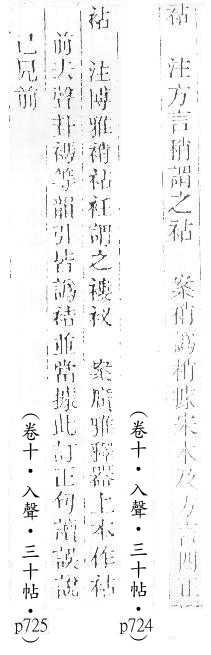 袩　注方言稍謂之袩　案稍譌梢據宋本及方言四正
（卷十・入聲・三十帖・p724）
袩　注博雅稍袩衽謂之褸衩　案廣雅釋器上本作袩
前去聲卦禡等韻引皆譌祜並當據此訂正句讀誤說
已見前
（卷十・入聲・三十帖・p725）